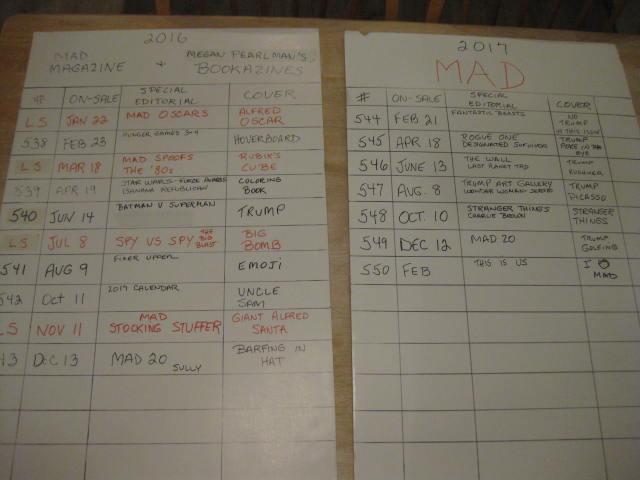 2016
MAD MAGAZINE + MEGAN PEARLMAN'S BOOKAZINES
# ON-SALE SPECIAL EDITORIAL COVER
LS JAN 22 MAD OSCARS ALFRED OSCAR
538 FEB 23 HUNGER GAMES 3-4 HOVERBOARD
LS MAR 18 MAD SPOOFS THE '80s RUBIK'S CUBE
539 APR 19 STAR WARS-FORCE AWAKENS BANANA REPUBLICAN COLORING BOOK
540 JUN 14 BATMAN V SUPERMAN TRUMP
LS JUL 8 SPY VS SPY THE BIG BLAST BIG BOMB
541 AUG 9 FIXER UPPER EMOJI
542 OCT 11 2017 CALENDAR UNCLE SAM
LS NOV 11 MAD STOCKING STUFFER GIANT ALFRED SANTA
43 DEC 13 MAD 20 SULLY BARFING IN HAT
2017
MAD
# ON-SALE SPECIAL EDITORIAL COVER
544 FEB 21 FANTASTIC BEASTS NO TRUMP IN THIS ISSUE
545 APR 18 ROGUE ONE DESIGNATED SURVIVOR TRUMP POKE IN THE EYE
546 JUNE 13 THE WALL TRUMP KUSHNER
547 AUG. 8 TRUMP ART GALLERY WONDER WOMAN TRUMP PICASSO
548 OCT. 10 STRANGER THINGS CHARLIE BROWN STRANGER THINGS
549 DEC 12 MAD 20 TRUMP GOLFING
550 FEB THIS IS US I MAD